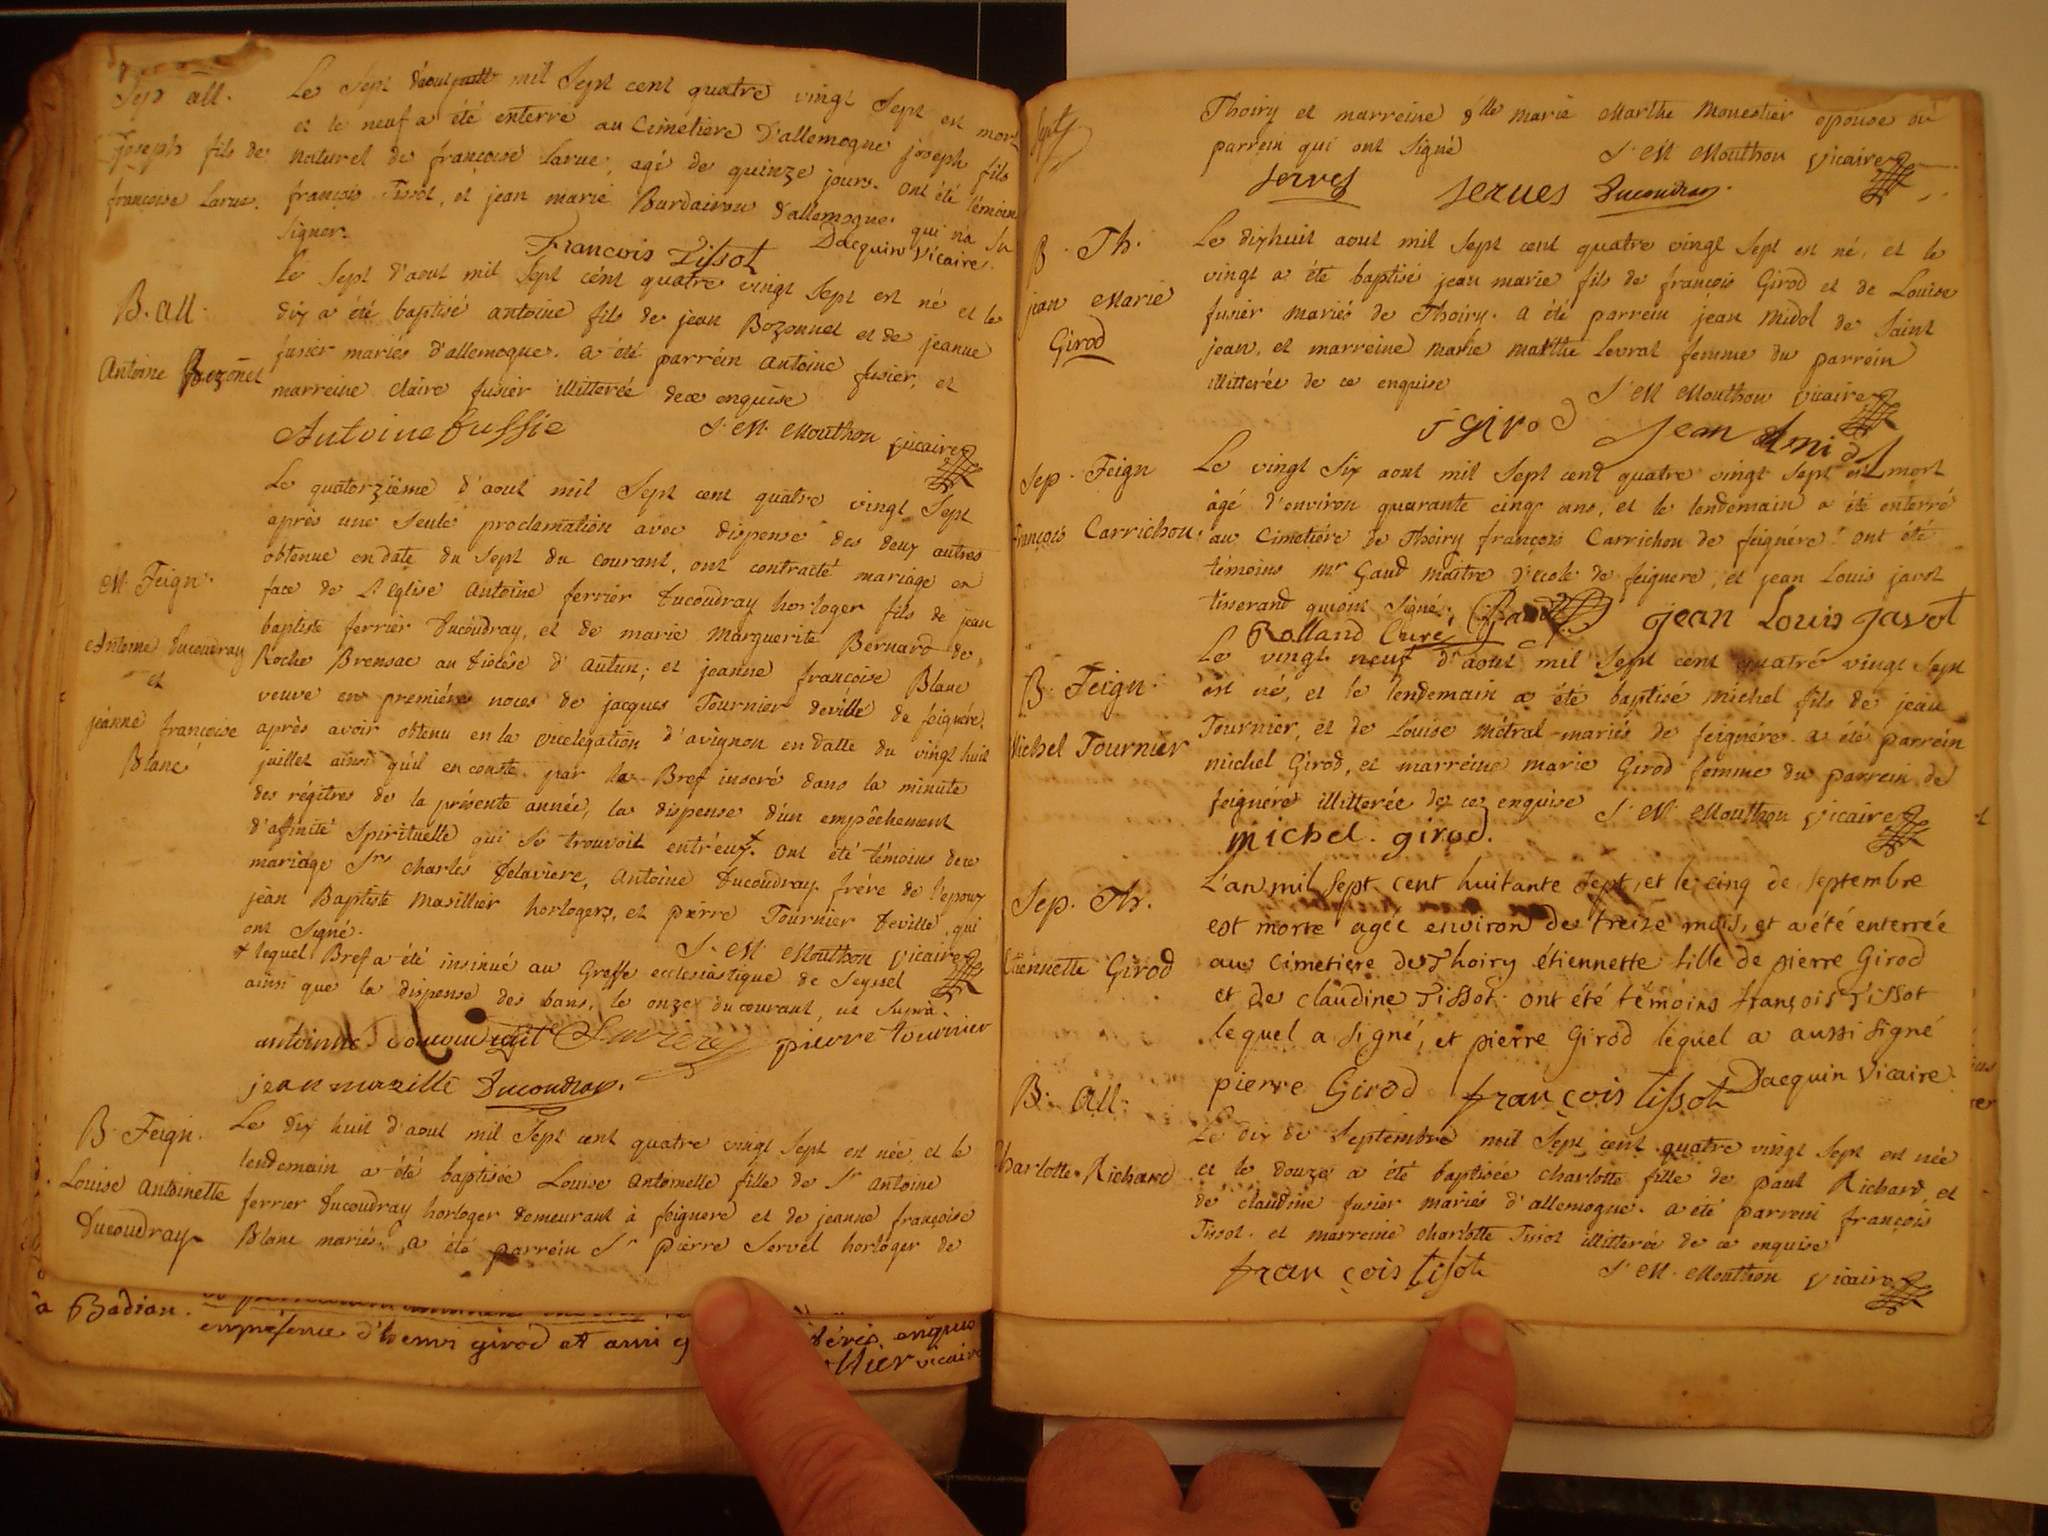 Sep all.
Joseph fils de
françoise Larue.
Le Sept d'aout mil Sept cent quatre vingt Sept est mort
et le neuf a été enterré au Cimetiere d'allemogne joseph fils
naturel de françoise Larue, agé de quinze jours. ont été témoins
françois Tissot, et jean marie Burdairon d'allemogne. qui n'a Su
Signer.
François Tissot Dacquin Vicaire.
B. all.
Antoine Bozonet
Le Sept d'aout mil Sept cent quatre vingt Sept est né et le
dix a été baptisé antoine fils de jean Bozonnet et de jeanne
fusier mariés d'allemogne. a été parrein antoine fusier, et
marreine claire fusier illitterée de ce enquise
Antoine fussie J. M. Mouthon vicaire
M Feign.
Antoine Ducoudray
et
jeanne françoise
Blanc
Le quatorziéme d'aout mil Sept cent quatre vingt Sept
après une Seule proclamation avec dispense des deux autres
obtenue en date du Sept du courant, ont contracté mariage en
face de L'Eglise Antoine ferrier Ducoudray horloger fils de jean
baptiste ferrier Ducoudray, et de marie Marguerite Bernard de
Roche Brensac au Diocése d'Autun; et jeanne françoise Blanc
veuve en premiéres noces de jacques Tournier deville de feignére.
après avoir obtenu en la vicelegation d'avignon en datte du vingt huit
juillet ainsi qu'il en conste par le Bref inseré dans la minute
des régitres de la présente année, la dispense d'un empêchement
d'affinité Spirituelle qui Se trouvoit entréux. ont été témoins de ce
mariage Srs charles Delaviere, Antoine Ducoudray frére de l'epoux
jean Baptiste Masillier horlogers, et pierre Tournier Deville, qui
ont Signé. J. M. Mouthon vicaire
+ lequel Bref a été insinué au Greffe ecclesiastique de Seyssel
ainsi que la dispense des bans, le onze du courant, ut Supra.
antoinne pierre tournier
jean mazillé Ducoudray.
B. Feign.
Louise Antoinette
Ducoudray
Le dix huit d'aout mil Sept cent quatre vingt Sept est née et le
lendemain a été baptisée Louise Antoinette fille de Sr antoine
ferrier Ducoudray horloger demeurant à feignere et de jeanne françoise
Blanc mariés. a été parrein Sr pierre Servel horloger de
à Badian.
en présence d'henri girod et ami enquis
vicaire
Thoiry et marreine dlle marie Marthe Monestier epouse du
parrein qui ont Signé J. M. Mouthon vicaire
Serves Serves Ducoudray.
B. Th.
jean Marie
Girod
Le dixhuit aout mil Sept cent quatre vingt Sept est né, et le
vingt a été baptisé jean marie fils de françois Girod et de Louise
fusier mariés de Thoiry. a été parrein jean Midol de Saint
jean, et marreine marie marthe Levrat femme du parrein
illitterée de ce enquise J. M. Mouthon vicaire
f girod jean midol
Sep. Feign
françois Carrichon.
Le vingt Six aout mil Sept cent quatre vingt Sept est mort
âgé d'environ quarante cinq ans, et le lendemain a été enterré
au Cimetiére de Thoiry françois Carrichon de feignére. ont été
témoins mr Gaud maître d'école de feignere, et jean Louis javot
tisserand qui ont Signé. Gaud jean Louis javot
Rolland Curé,
B. Feign.
Michel Tournier
Le vingt neuf d'aout mil Sept cent quatre vingt Sept
est né, et le lendemain a été baptisé michel fils de jean
Tournier, et de Louise Métral mariés de feignére. a été parrein
michel Girod, et marreine marie Girod femme du parrein de
feignére illitterée de ce enquise J. M. Mouthon vicaire
michel. girod.
Sep. Th.
Etiennette Girod
L'an mil Sept cent huitante Sept, et le cinq de septembre
est morte agée environ de treize mois, et a été enterrée
au Cimetiere de Thoiry étiennette fille de pierre Girod
et de claudine Tissot. ont été témoins françois Tissot
lequel a signé, et pierre Girod lequel a aussi signé
pierre Girod françois tissot Dacquin Vicaire.
B. All.
Charlotte Richard
Le dix de Septembre mil Sept cent quatre vingt Sept est née
et le douze a été baptisée charlotte fille de paul Richard, et
de claudine fusier mariés d'allemogne. a été parrein françois
Tissot. et marreine charlotte Tissot illitterée de ce enquise
françois tissot J. M. Mouthon vicaire